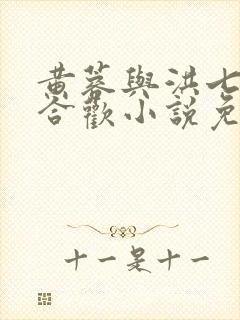 黃蓉與洪七
合歡小說免
十一是十一